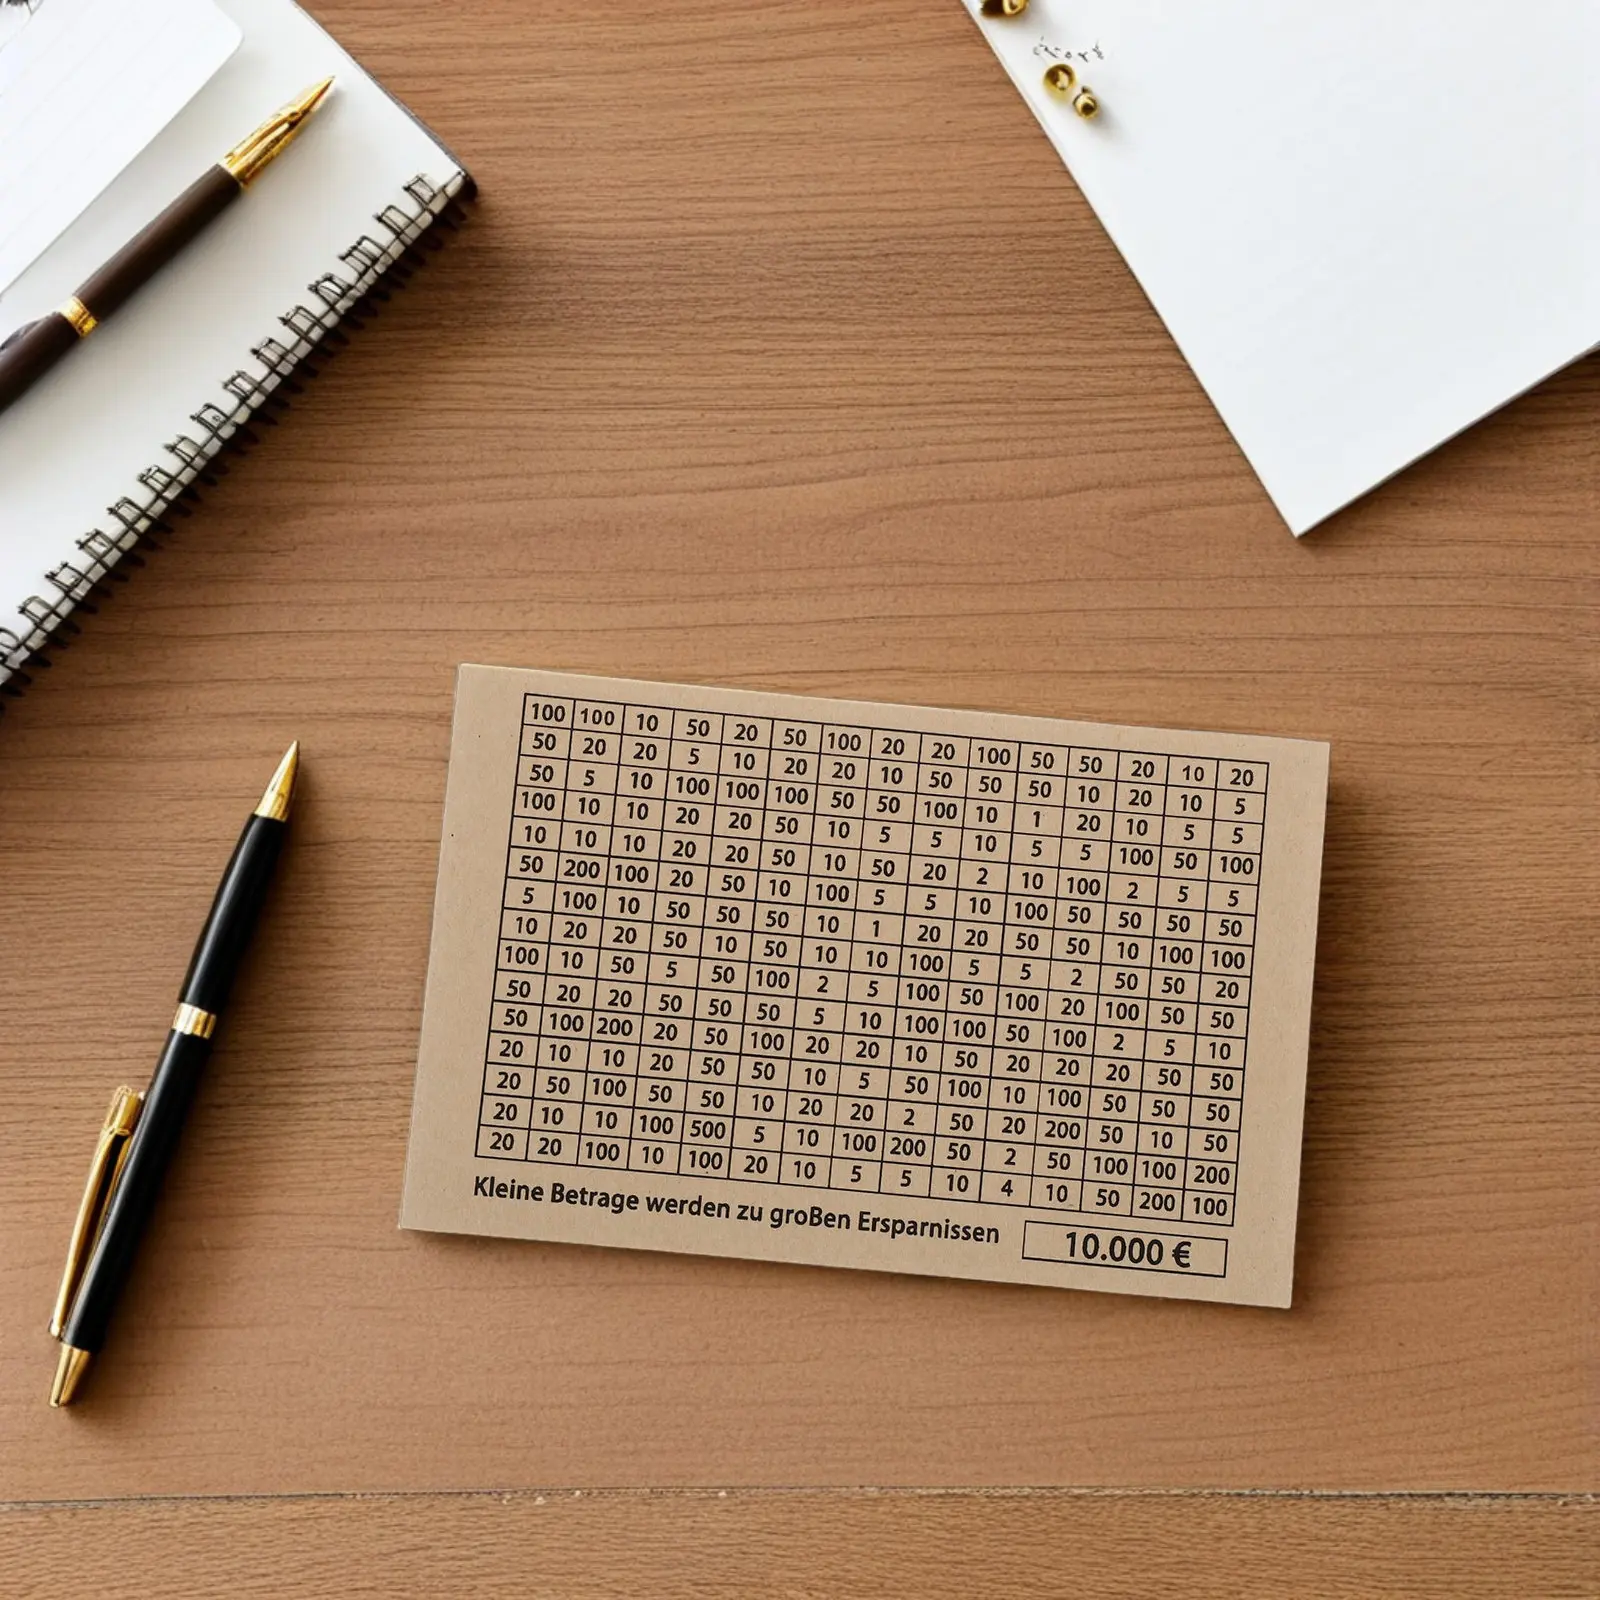 100 100 10 50 20 50 100 20 20 100 50 50 20 10 20
50 20 20 5 10 20 20 10 50 50 50 10 20 10 5
50 5 10 100 100 100 50 50 100 10 1 20 10 5 5
100 10 10 20 20 50 10 5 5 10 5 5 100 50 100
10 10 10 20 20 50 10 50 20 2 10 100 2 5 5
50 200 100 20 50 10 100 5 5 10 100 50 50 50 50
5 100 10 50 50 50 10 1 20 20 50 50 10 100 100
10 20 20 50 10 50 10 10 100 5 5 2 50 50 20
100 10 50 5 50 100 2 5 100 50 100 20 100 50 50
50 20 20 50 50 50 5 10 100 100 50 100 2 5 10
50 100 200 20 50 100 20 20 10 50 20 20 20 50 50
20 10 10 20 50 50 10 5 50 100 10 100 50 50 50
20 50 100 50 50 10 20 20 2 50 20 200 50 10 50
20 10 10 100 500 5 10 100 200 50 2 50 100 100 200
20 20 100 10 100 20 10 5 5 10 4 10 50 200 100
Kleine Betrage werden zu groBen Ersparnissen
10.000 €